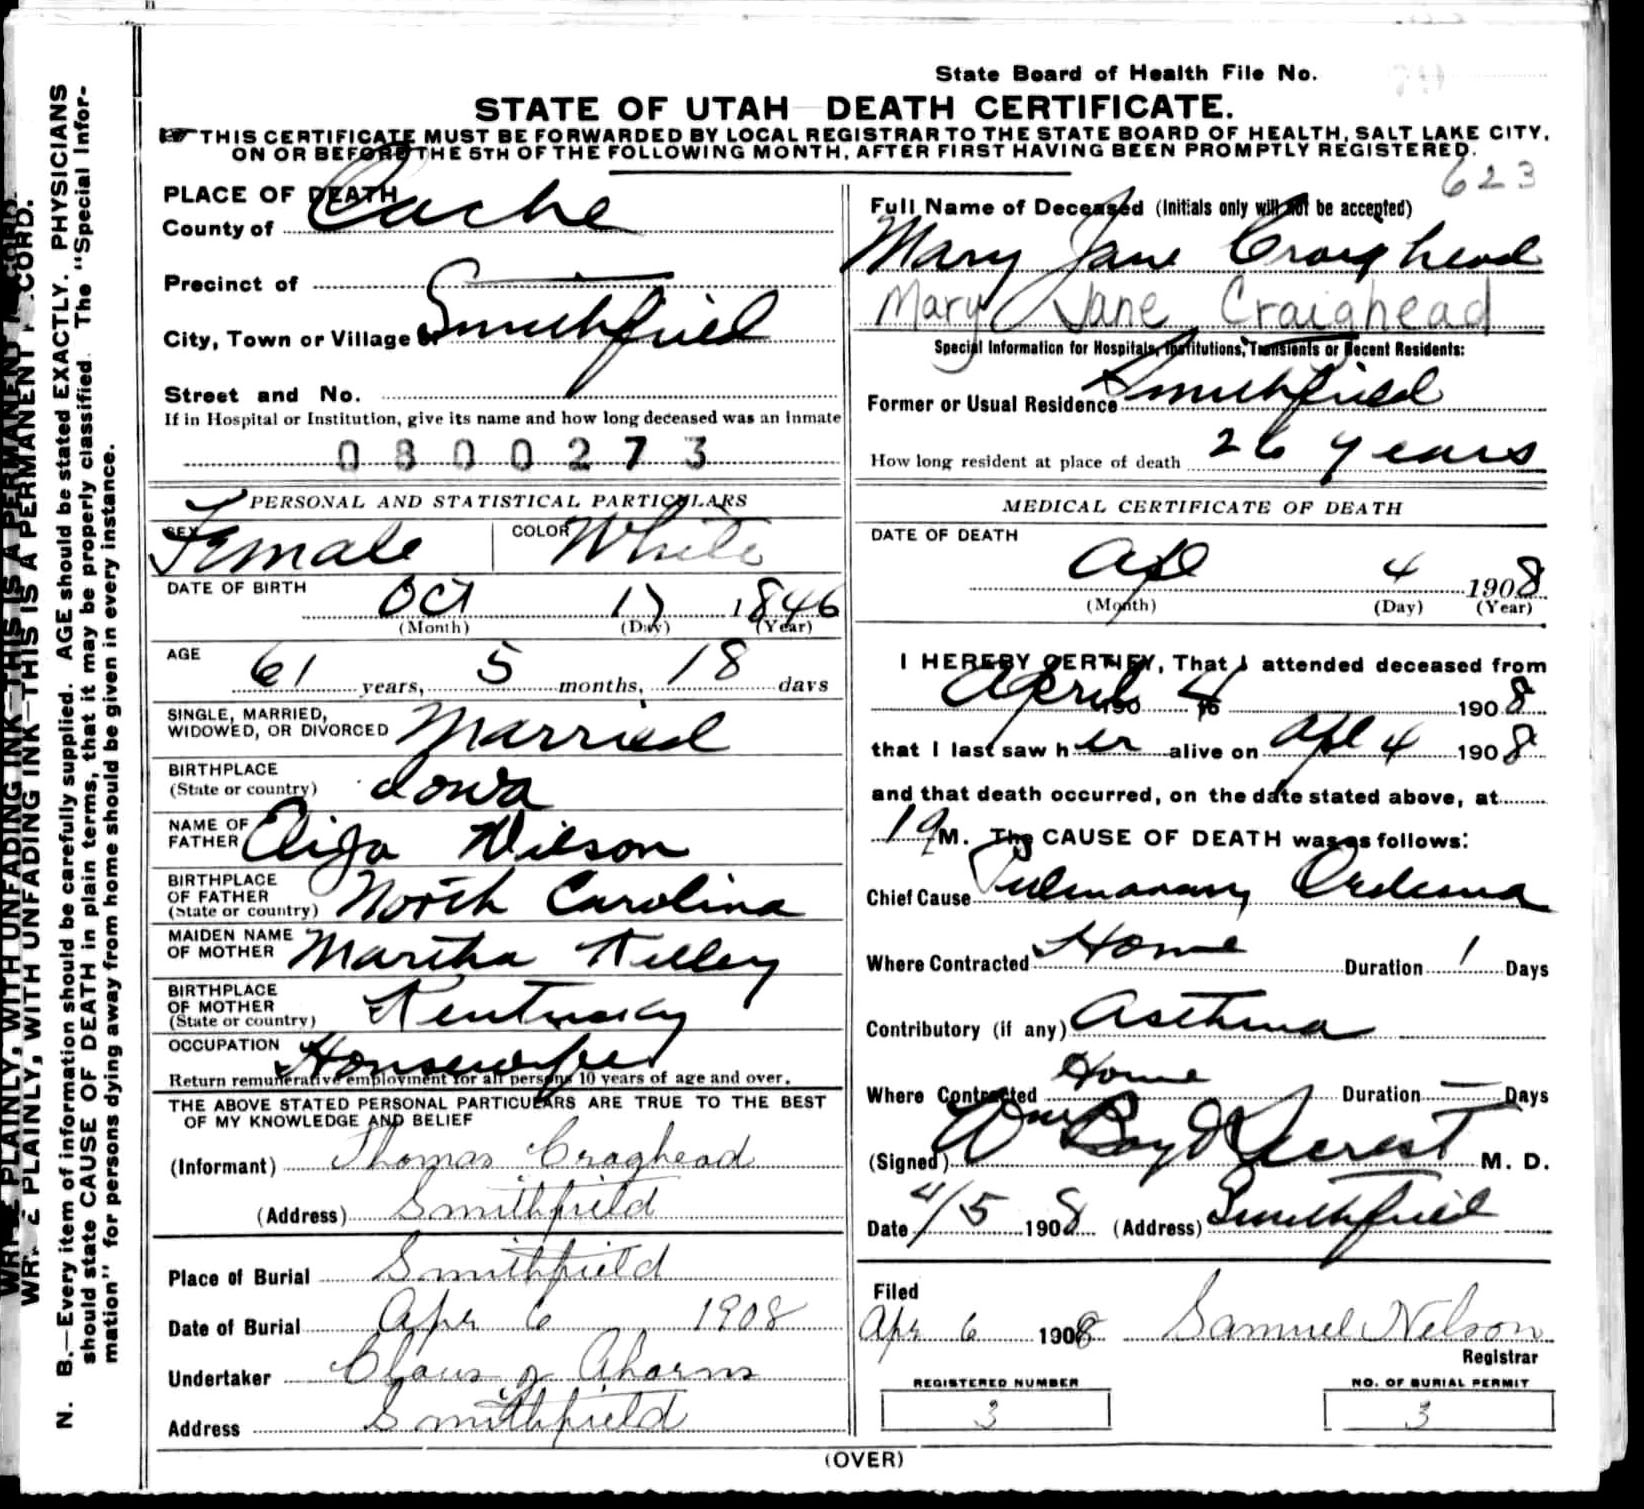 State Board of Health File No.
STATE OF UTAH DEATH CERTIFICATE.
THIS CERTIFICATE MUST BE FORWARDED BY LOCAL REGISTRAR TO THE STATE BOARD OF HEALTH, SALT LAKE CITY,
ON OR BEFORE THE 5TH OF THE FOLLOWING MONTH, AFTER FIRST HAVING BEEN PROMPTLY REGISTERED.
623
PLACE OF DEATH
County of Cache
Precinct of
City, Town or Village of Smithfield
Street and No.
If in Hospital or Institution, give its name and how long deceased was an inmate
0800273
PERSONAL AND STATISTICAL PARTICULARS
SEX Female COLOR White
DATE OF BIRTH Oct 17 1846
(Month) (Day) (Year)
AGE 61 years, 5 months, 18 days
SINGLE, MARRIED,
WIDOWED, OR DIVORCED Married
BIRTHPLACE
(State or country) Iowa
NAME OF
FATHER Elija Wilson
BIRTHPLACE
OF FATHER
(State or country) North Carolina
MAIDEN NAME
OF MOTHER Martha Kelley
BIRTHPLACE
OF MOTHER
(State or country) Kentucky
OCCUPATION Housewife
Return remunerative employment for all persons 10 years of age and over.
THE ABOVE STATED PERSONAL PARTICULARS ARE TRUE TO THE BEST
OF MY KNOWLEDGE AND BELIEF
(Informant) Thomas Craghead
(Address) Smithfield
Place of Burial Smithfield
Date of Burial Apr 6 1908
Undertaker Claus
Address Smithfield
Full Name of Deceased (Initials only will not be accepted)
Mary Jane Craighead
Mary Jane Craighead
Special Information for Hospitals, Institutions, Transients or Recent Residents:
Former or Usual Residence Smithfield
How long resident at place of death 26 years
MEDICAL CERTIFICATE OF DEATH
DATE OF DEATH
Apl 4 1908
(Month) (Day) (Year)
I HEREBY CERTIFY, That I attended deceased from
April 4 190 to 1908
that I last saw her alive on Apl 4 1908
and that death occurred, on the date stated above, at
M. The CAUSE OF DEATH was as follows:
Chief Cause Pulmonary Oedema
Where Contracted Home Duration 1 Days
Contributory (if any) Asthma
Where Contracted Home Duration — Days
(Signed) Wm M. D.
Date 4/5 1908 (Address) Smithfield
Filed
Apr 6 1908 Samuel Nelson
Registrar
REGISTERED NUMBER
3
NO. OF BURIAL PERMIT
3
(OVER)
WRITE PLAINLY, WITH UNFADING INK—THIS IS A PERMANENT RECORD.
N. B.—Every item of information should be carefully supplied. AGE should be stated EXACTLY. PHYSICIANS
should state CAUSE OF DEATH in plain terms, that it may be properly classified. The "Special Infor-
mation" for persons dying away from home should be given in every instance.